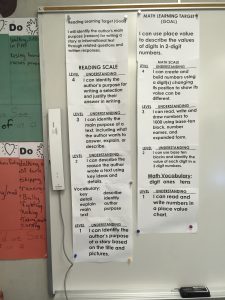 Reading Learning Target (Goal)
I will identify the author's main
purpose (reason) for writing a
story or informational text
through related questions and
written responses.
READING SCALE
LEVEL UNDERSTANDING
4 I can identify the
author's purpose for
writing a selection
and justify their
answer in writing.
LEVEL UNDERSTANDING
3 I can identify the
main purpose of a
text, including what
the author wants to
answer, explain, or
describe.
LEVEL UNDERSTANDING
2 I can describe the
reason the author
wrote a text using
key ideas and
details.
Vocabulary:
key describe
detail identify
explain author
main purpose
text
LEVEL UNDERSTANDING
1 I can identify the
author's purpose of
a story based on the
title and pictures.
MATH LEARNING TARGET
(GOAL)
I can use place value
to describe the values
of digits in 2-digit
numbers.
MATH SCALE
LEVEL UNDERSTANDING
4 I can create and build
numbers using a
digit(s) changing
its position to show its
value can be
different.
LEVEL UNDERSTANDING
3 I can read, write and
draw numbers to
1000 using base-ten
block, number
names, and
expanded form.
LEVEL UNDERSTANDING
2 I can use base ten
blocks and identify the
value of each digit in a
2-digit number.
Math Vocabulary:
digit ones tens
LEVEL UNDERSTANDING
1 I can read and
write numbers in
a place value
chart.
Do
of
Do